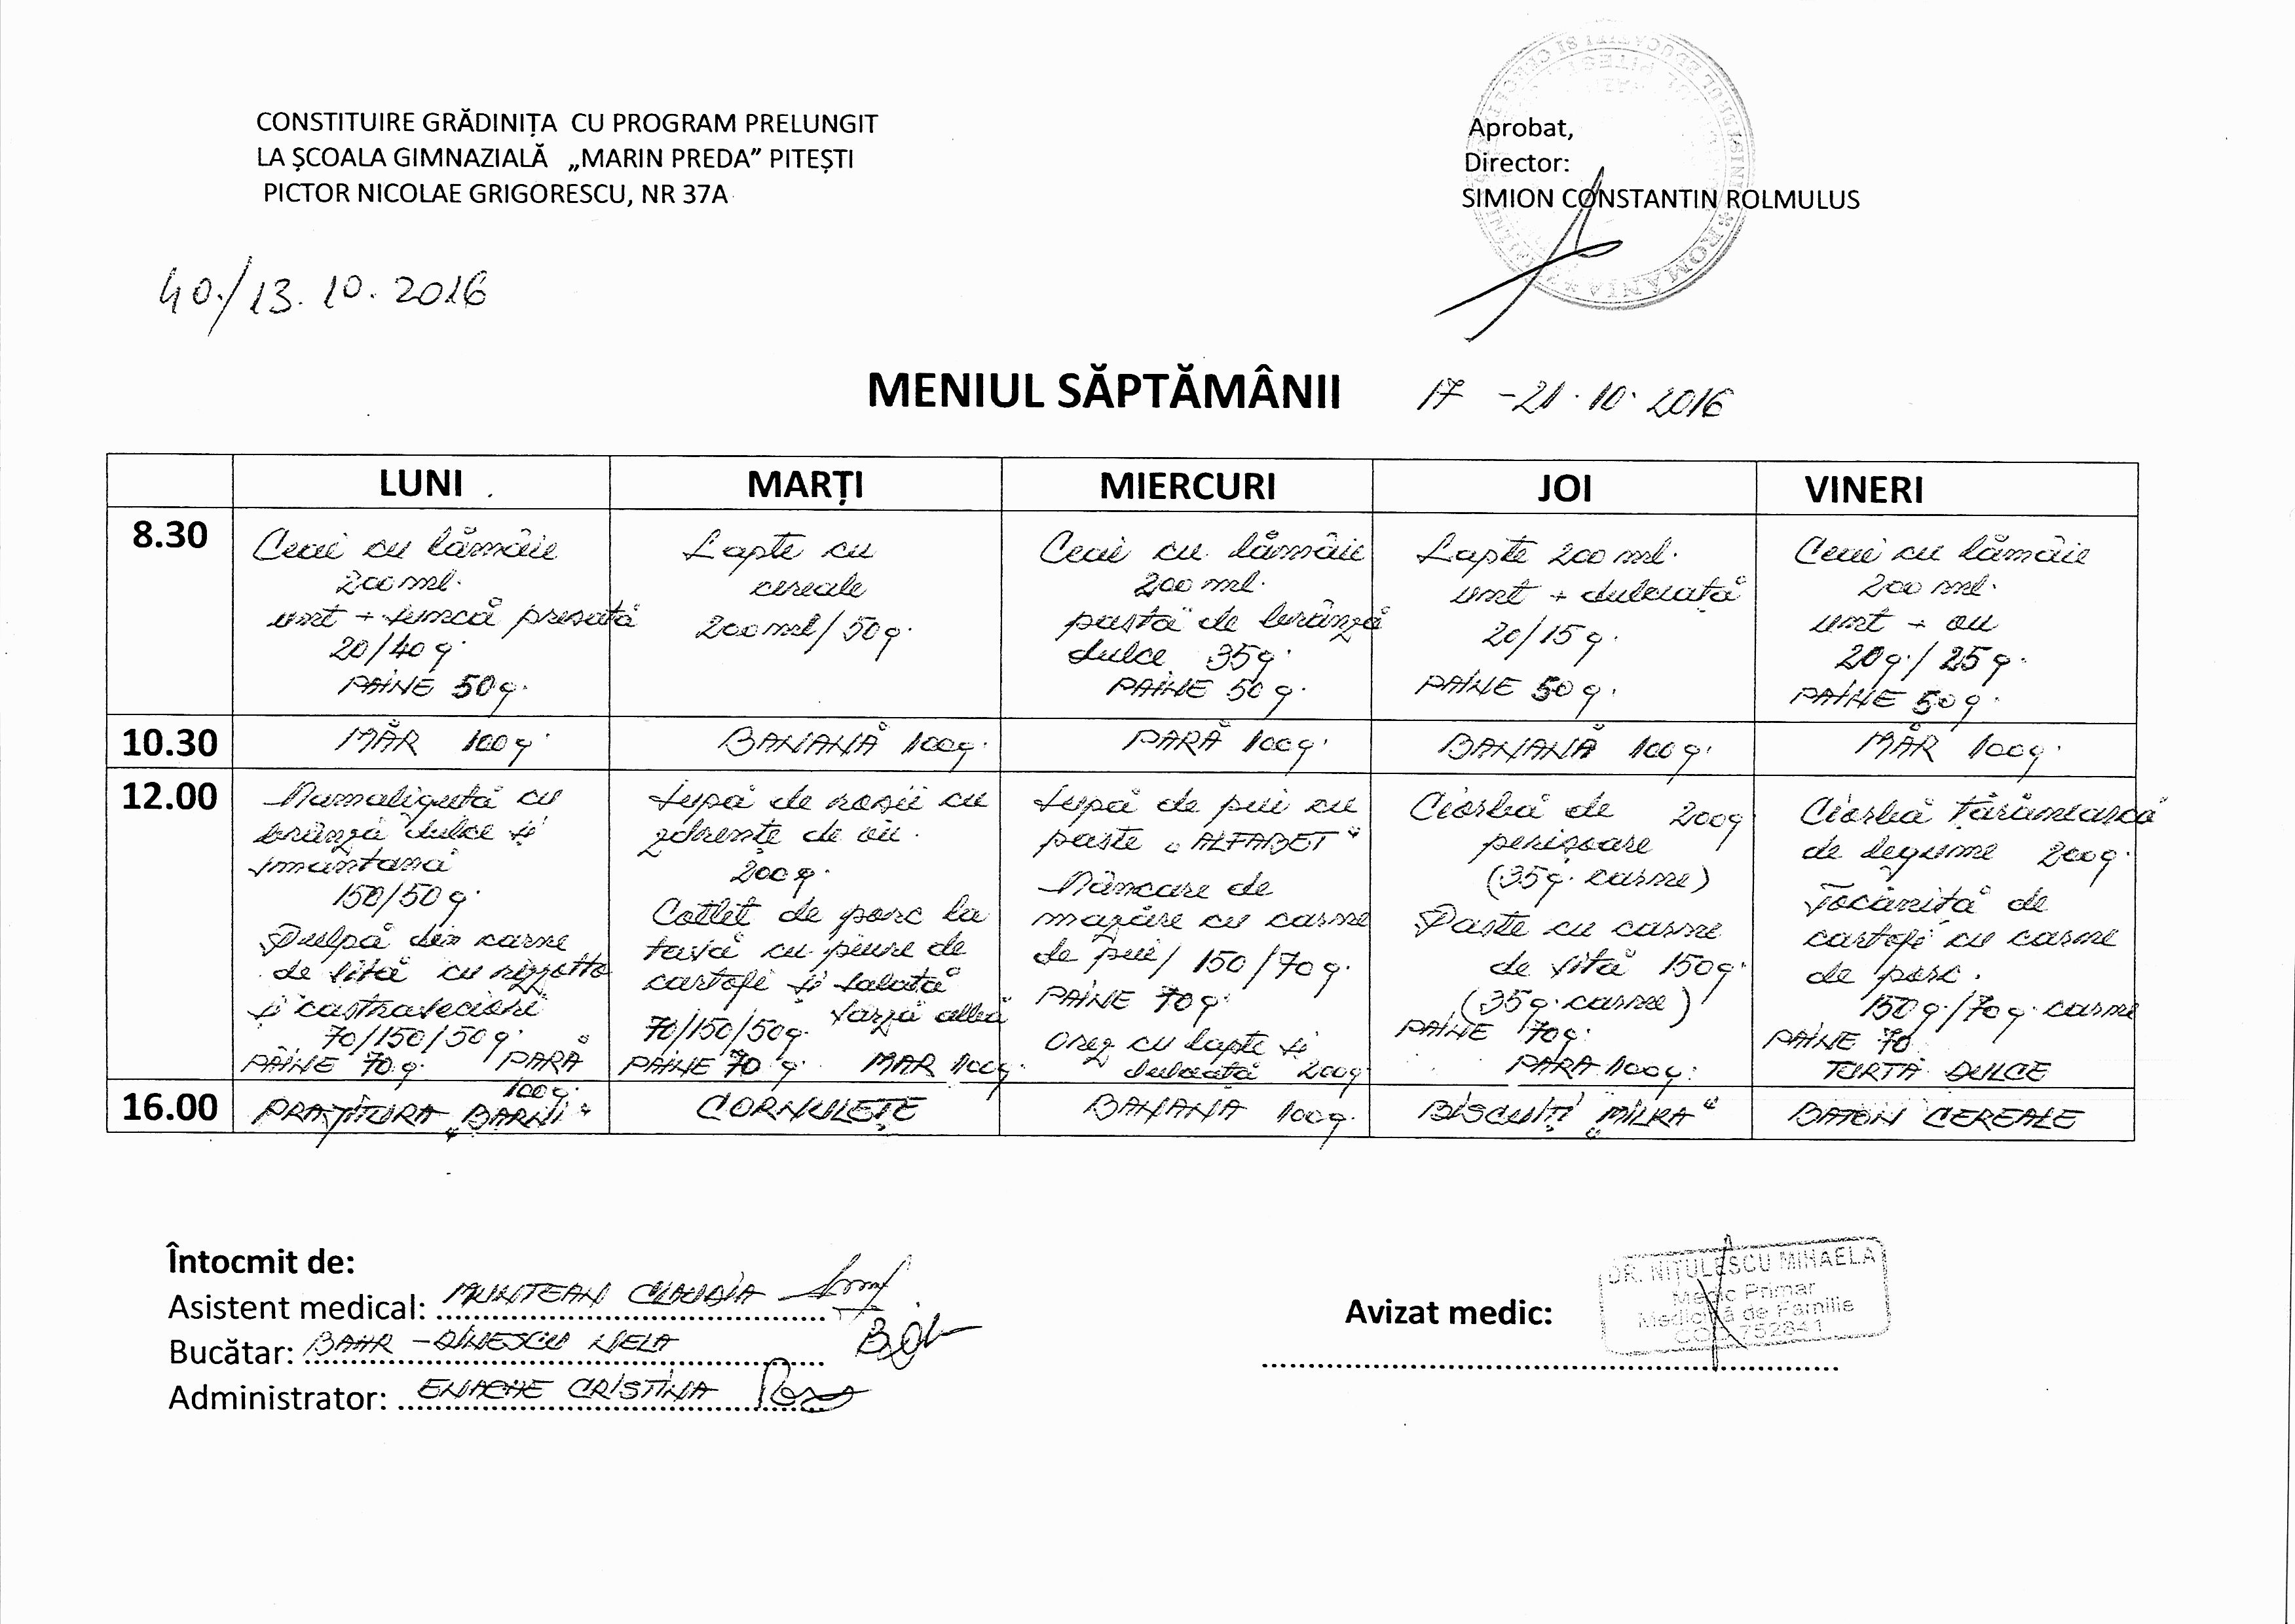 CONSTITUIRE GRĂDINIȚA CU PROGRAM PRELUNGIT
LA ȘCOALA GIMNAZIALĂ „MARIN PREDA” PITEȘTI
PICTOR NICOLAE GRIGORESCU, NR 37A
Aprobat,
Director:
SIMION CONSTANTIN ROLMULUS
ROMÂNIA
40./13.10.2016
MENIUL SĂPTĂMÂNII 17 - 21.10.2016
LUNI MARȚI MIERCURI JOI VINERI
8.30
Ceai cu lămâie
200 ml.
unt + șuncă presată
20/40 g.
PAINE 50g.
Lapte cu
cereale
200 ml/50g.
Ceai cu lămâie
200 ml.
pastă de brânză
dulce 35g.
PAINE 50g.
Lapte 200 ml.
unt + dulceață
20/15g.
PAINE 50g.
Ceai cu lămâie
200 ml.
unt + ou
20g./25g.
PAINE 50g.
10.30
MĂR 100g.
BANANĂ 100g.
PARĂ 100g.
BANANĂ 100g.
MĂR 100g.
12.00
Mamaliguță cu
brânză dulce și
smântană
150/50g.
Pulpă din carne
de vită cu rizzotto
și castraveciori
70/150/50g.
PAINE 70g. PARĂ
100g.
Supă de roșii cu
zdrențe de ou.
200g.
Cotlet de porc la
tavă cu piure de
cartofi și salată
varză albă
70/150/50g.
PAINE 70 g. MAR 100g.
Supă de pui cu
paste „ALFABET"
Mâncare de
mazăre cu carne
de pui/150/70g.
PAINE 70g.
Orez cu lapte și
dulceață 200g
Ciorbă de 200g
perișoare
(35g. carne)
Paste cu carne
de vită 150g.
(35g. carne)
PAINE 70g.
PARA 100g.
Ciorbă țărănească
de legume 200g.
Tocăniță de
cartofi cu carne
de porc.
150g./70g. carne
PAINE 70
TURTĂ DULCE
16.00
PRĂJITURA „BARNI"
CORNULEȚE
BANANA 100g.
BISCUIȚI „MILKA"
BATON CEREALE
Întocmit de:
Asistent medical: MUNTEAN CLAUDIA
Bucătar: BAHR-DINESCU NELA
Administrator: ENACHE CRISTINA
Avizat medic:
DR. NIȚULESCU MIHAELA
Medic Primar
Medicină de Familie
COD 752841